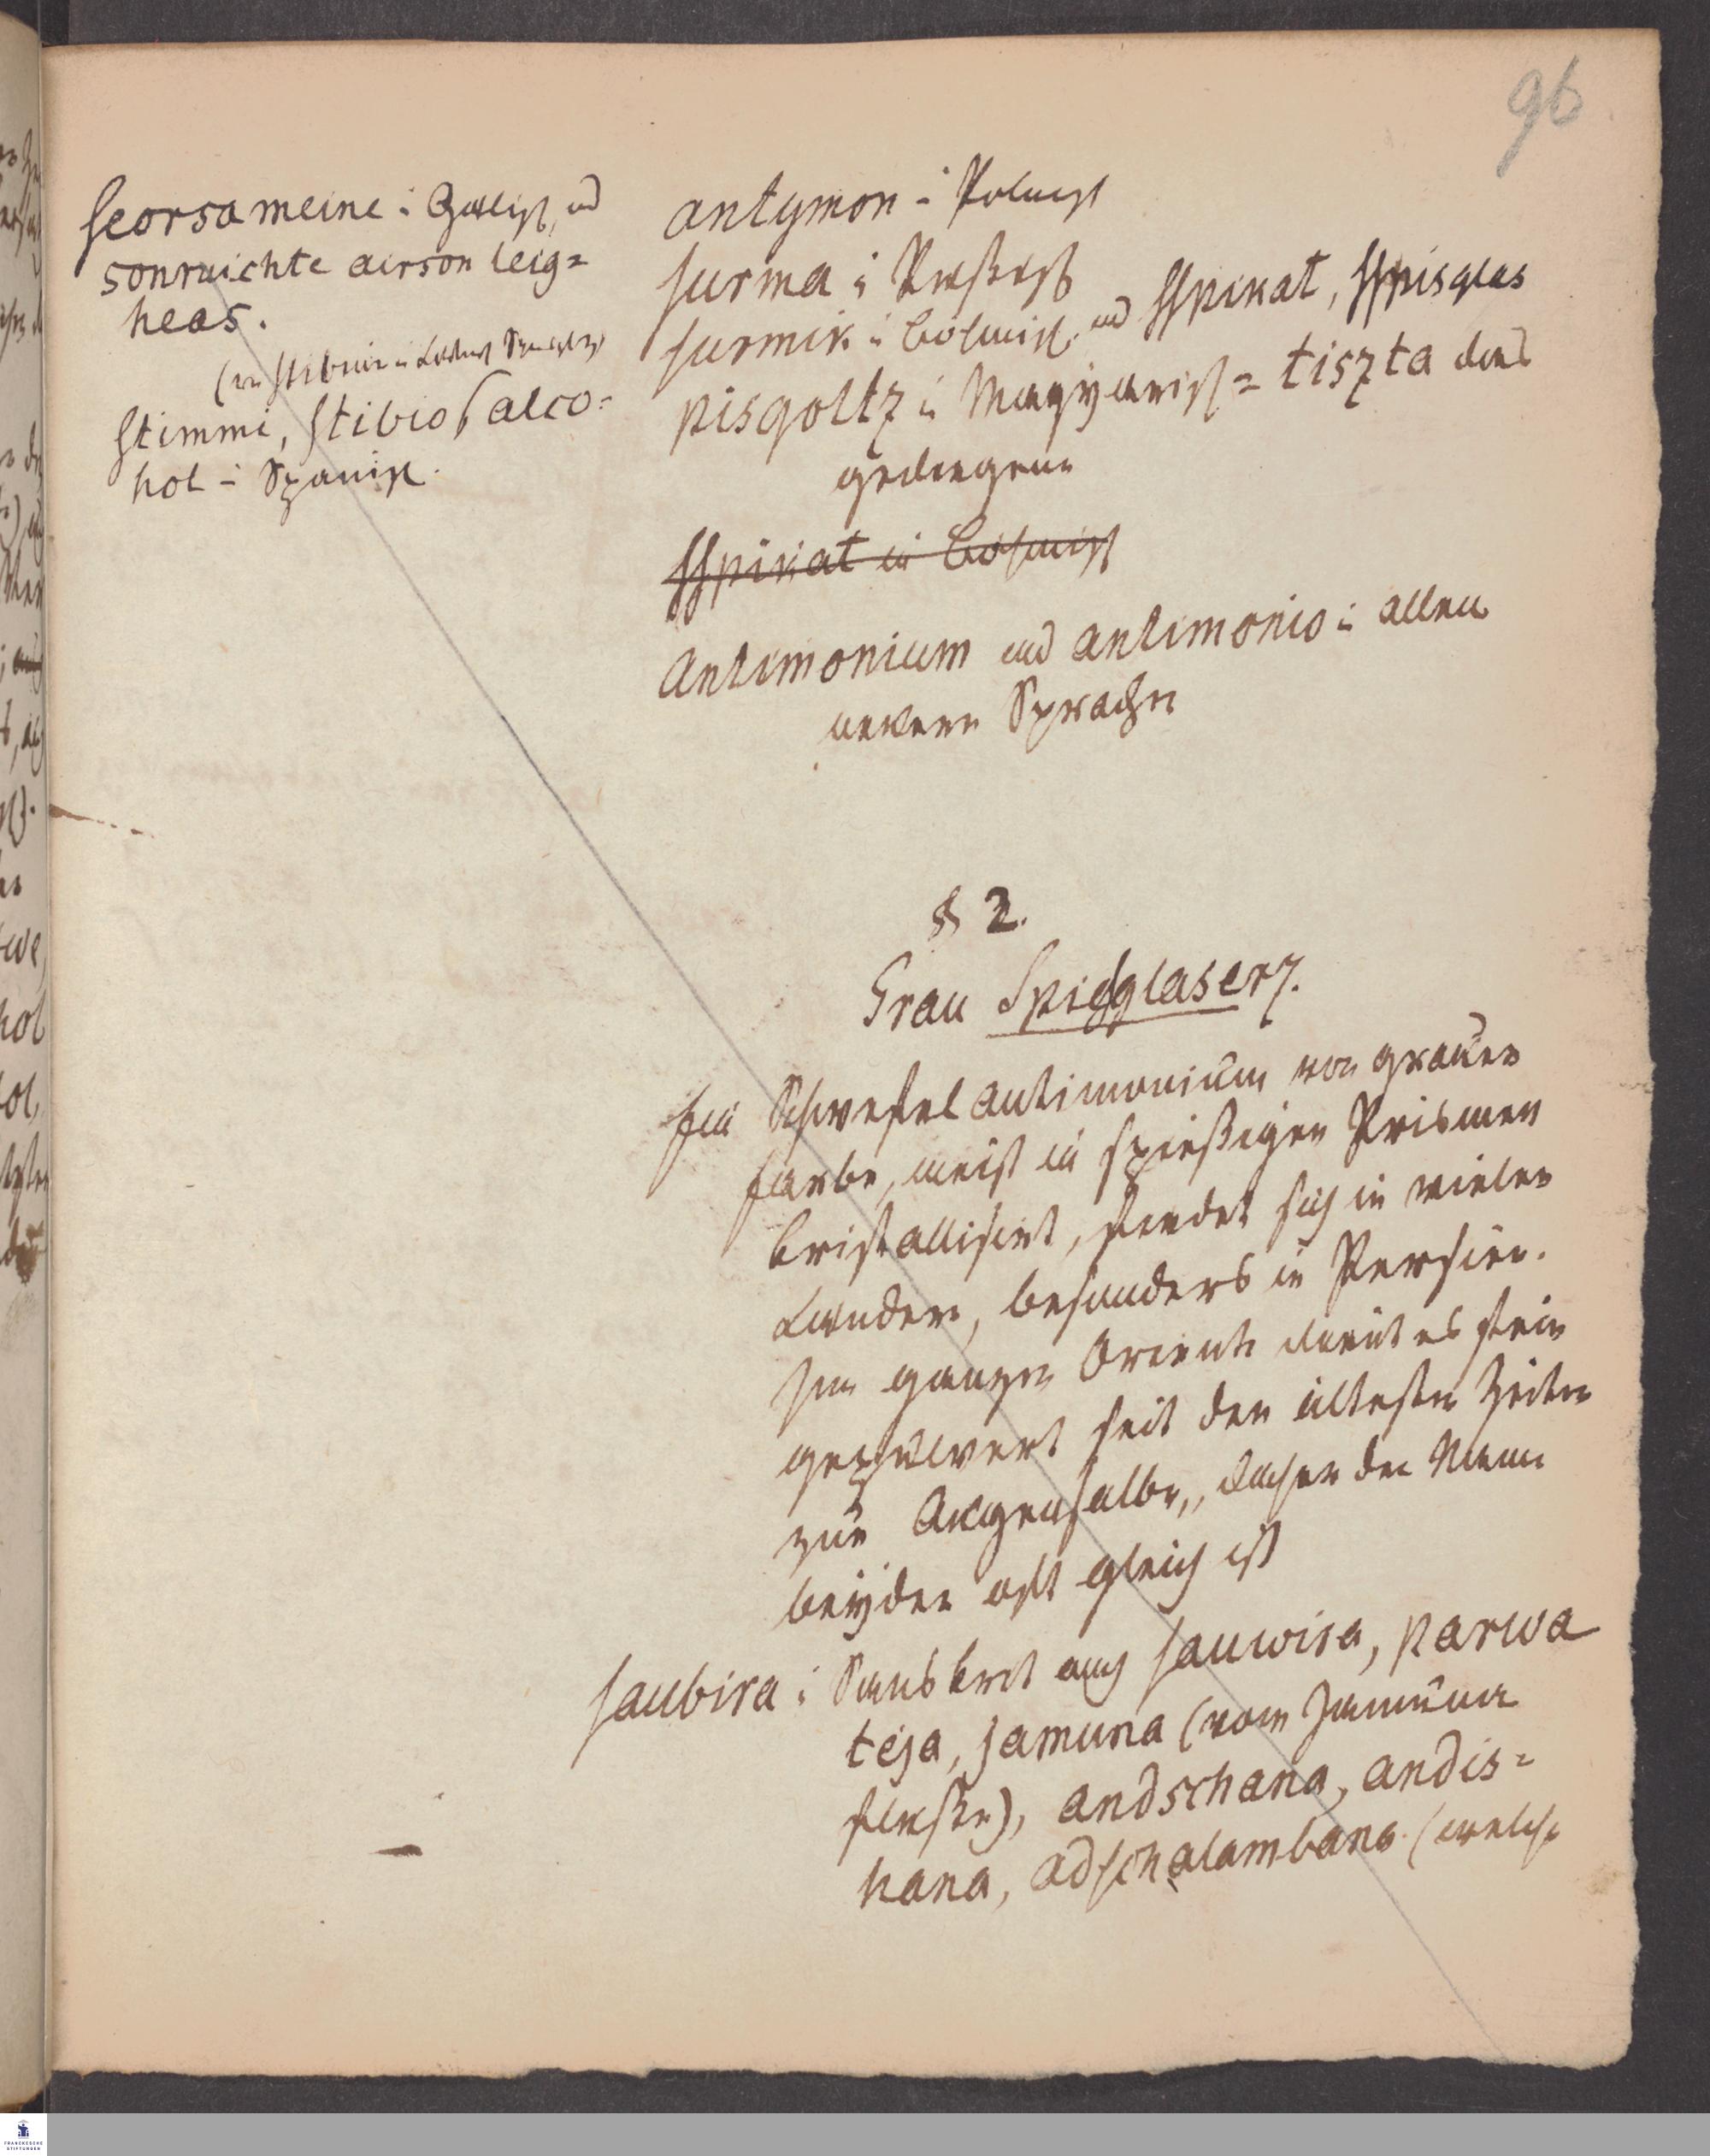 96
seorsa meine i Galisch, und
sonruichte airson leig=
heas.
(wie stibium i
stimmi, stibio, alco=
hol i Spanisch.
antymon i Polnisch
surma i Rußisch
surmik i Böhmisch und sspikat, sspisglas
pisgoltz i Magyarisch = tiszta das
gediegene
sspikat in Böhmisch
Antimonium und antimonio i allen
neuern Sprachen
§ 2.
Grau Spiesglaserz.
Ein Schwefelantimonium von grauer
farbe, meist in spießigen Prismen
kristallisirt, findet sich in vielen
Ländern, besonders in Persien.
Im ganzen Orient dient es fein
gepulvert seit den ältesten Zeiten
zur Augensalbe, daher der Name
beyder oft gleich ist
saubira i Sanskrit auch sauwira, parwa
teja, jamuna (vom Jamuna
fluße), andschana, andis=
hana, adschalambana (welche
FRANCKESCHE
STIFTUNGEN